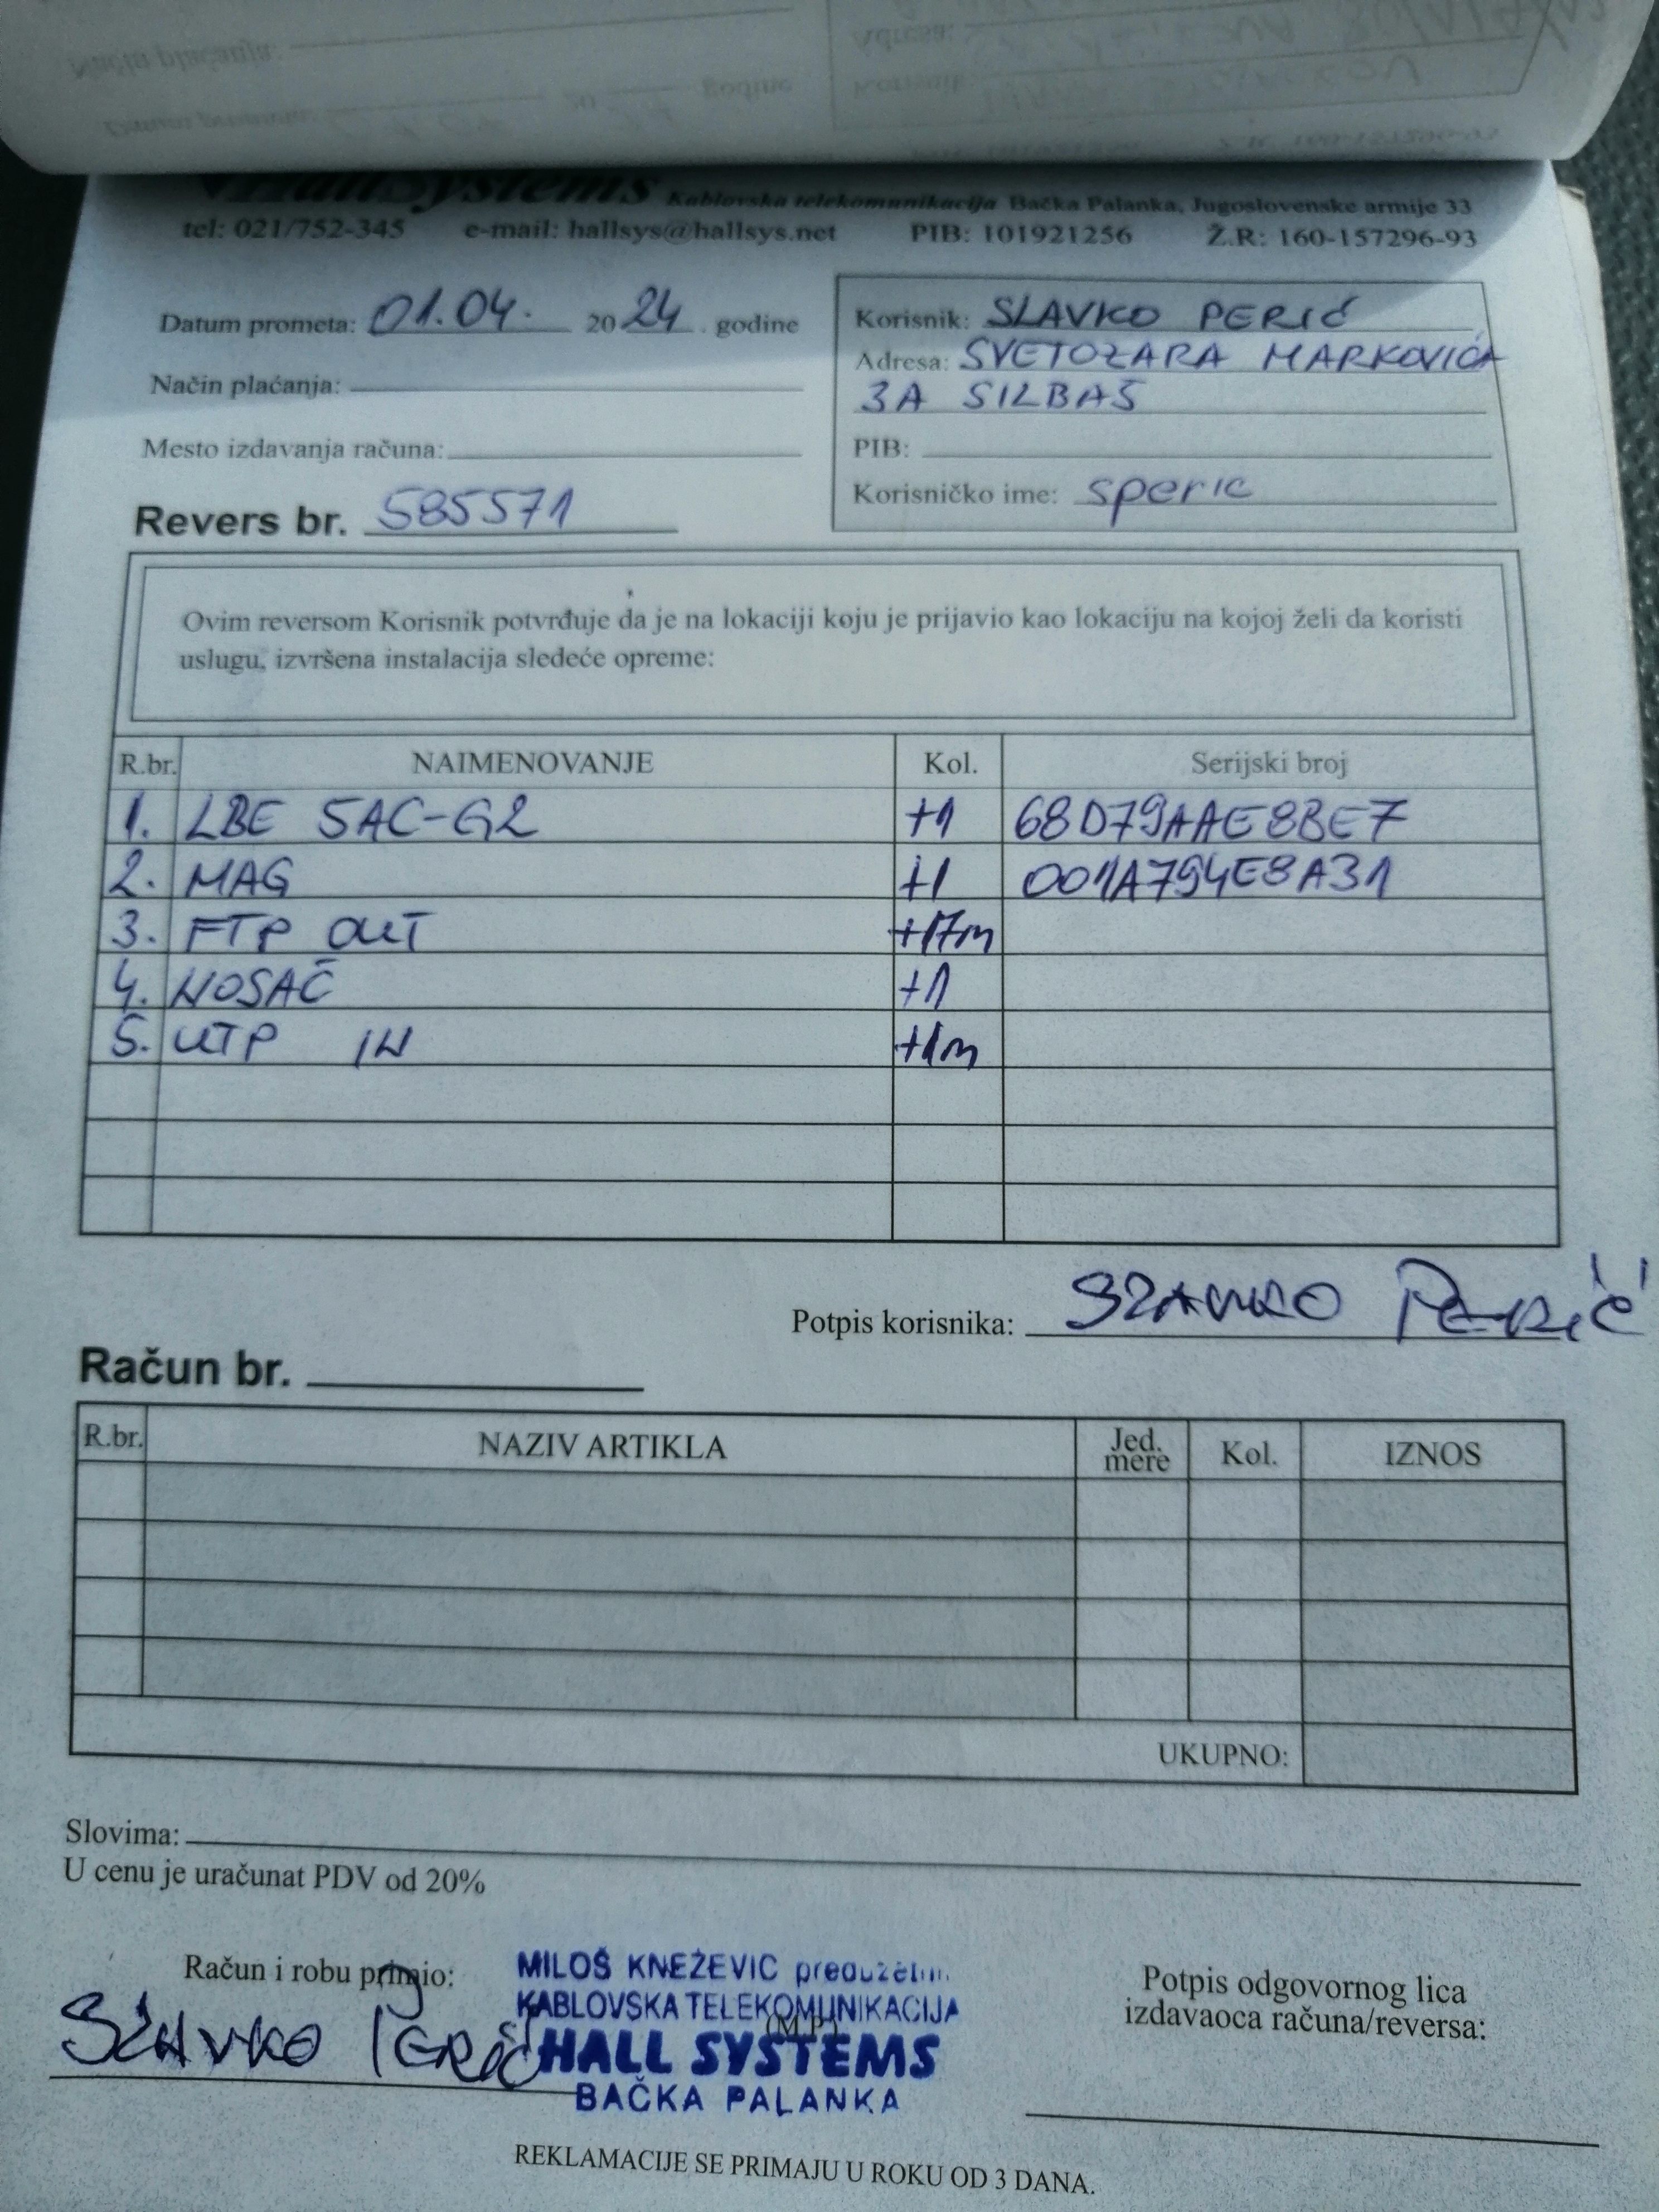 HallSystems Kablovska telekomunikacija Bačka Palanka, Jugoslovenske armije 33
tel: 021/752-345 e-mail: hallsys@hallsys.net PIB: 101921256 Ž.R: 160-157296-93
Datum prometa: 01.04. 2024. godine
Način plaćanja:
Mesto izdavanja računa:
Revers br. 585571
Korisnik: SLAVKO PERIĆ
Adresa: SVETOZARA MARKOVIĆA
3A SILBAŠ
PIB:
Korisničko ime: speric
Ovim reversom Korisnik potvrđuje da je na lokaciji koju je prijavio kao lokaciju na kojoj želi da koristi
uslugu, izvršena instalacija sledeće opreme:
R.br. NAIMENOVANJE Kol. Serijski broj
1. LBE 5AC-G2 +1 68D79AAE8BE7
2. MAG +1 001A794E8A31
3. FTP OUT +17m
4. NOSAČ +1
5. UTP IN +1m
Potpis korisnika: SLAVKO PERIĆ
Račun br.
R.br. NAZIV ARTIKLA Jed. mere Kol. IZNOS
UKUPNO:
Slovima:
U cenu je uračunat PDV od 20%
Račun i robu primio:
SLAVKO PERIĆ
MILOŠ KNEŽEVIĆ preduzetnik
KABLOVSKA TELEKOMUNIKACIJA
(M.P.)
HALL SYSTEMS
BAČKA PALANKA
Potpis odgovornog lica
izdavaoca računa/reversa:
REKLAMACIJE SE PRIMAJU U ROKU OD 3 DANA.